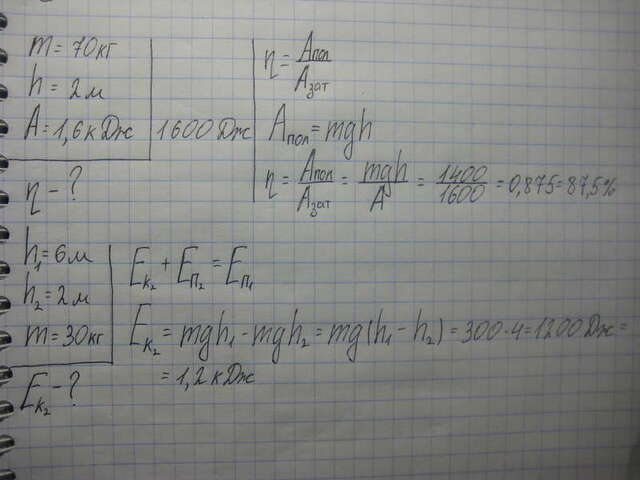 m = 70кг
h = 2м
A = 1,6кДж
1600 Дж
η - ?
η = Aпол/Aзат
Aпол = mgh
η = Aпол/Aзат = mgh/A = 1400/1600 = 0,875 = 87,5%
h₁ = 6м
h₂ = 2м
m = 30кг
Eк₂ - ?
Eк₂ + Eп₂ = Eп₁
Eк₂ = mgh₁ - mgh₂ = mg(h₁ - h₂) = 300·4 = 1200 Дж =
= 1,2кДж